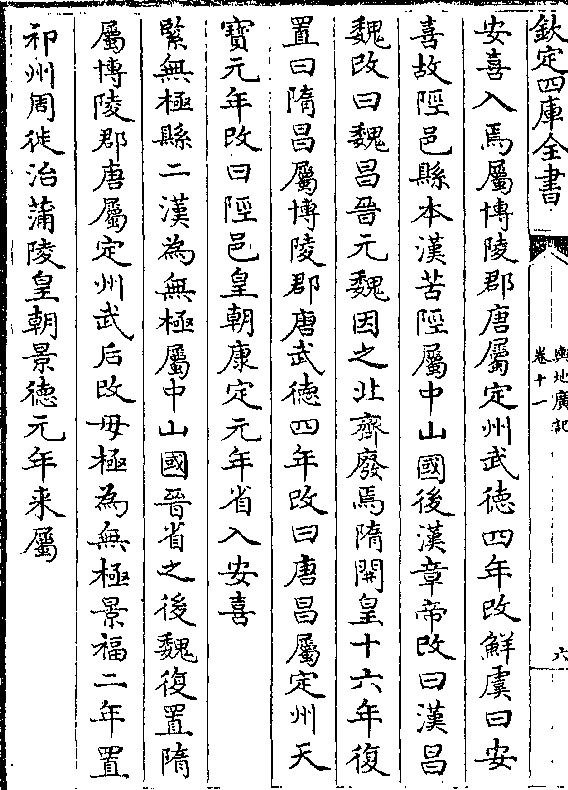 欽定四庫全書
輿地廣記
卷十一
六
安喜入焉屬博陵郡唐屬定州武徳四年改鮮虞曰安
喜故陘邑縣本漢苦陘屬中山國後漢章帝改曰漢昌
魏改曰魏昌晉元魏因之北齊廢焉隋開皇十六年復
置曰隋昌屬博陵郡唐武徳四年改曰唐昌屬定州天
寶元年改曰陘邑皇朝康定元年省入安喜
緊無極縣二漢為無極屬中山國晉省之後魏復置隋
屬博陵郡唐屬定州武后改毋極為無極景福二年置
祁州周徙治蒲陵皇朝景徳元年来屬